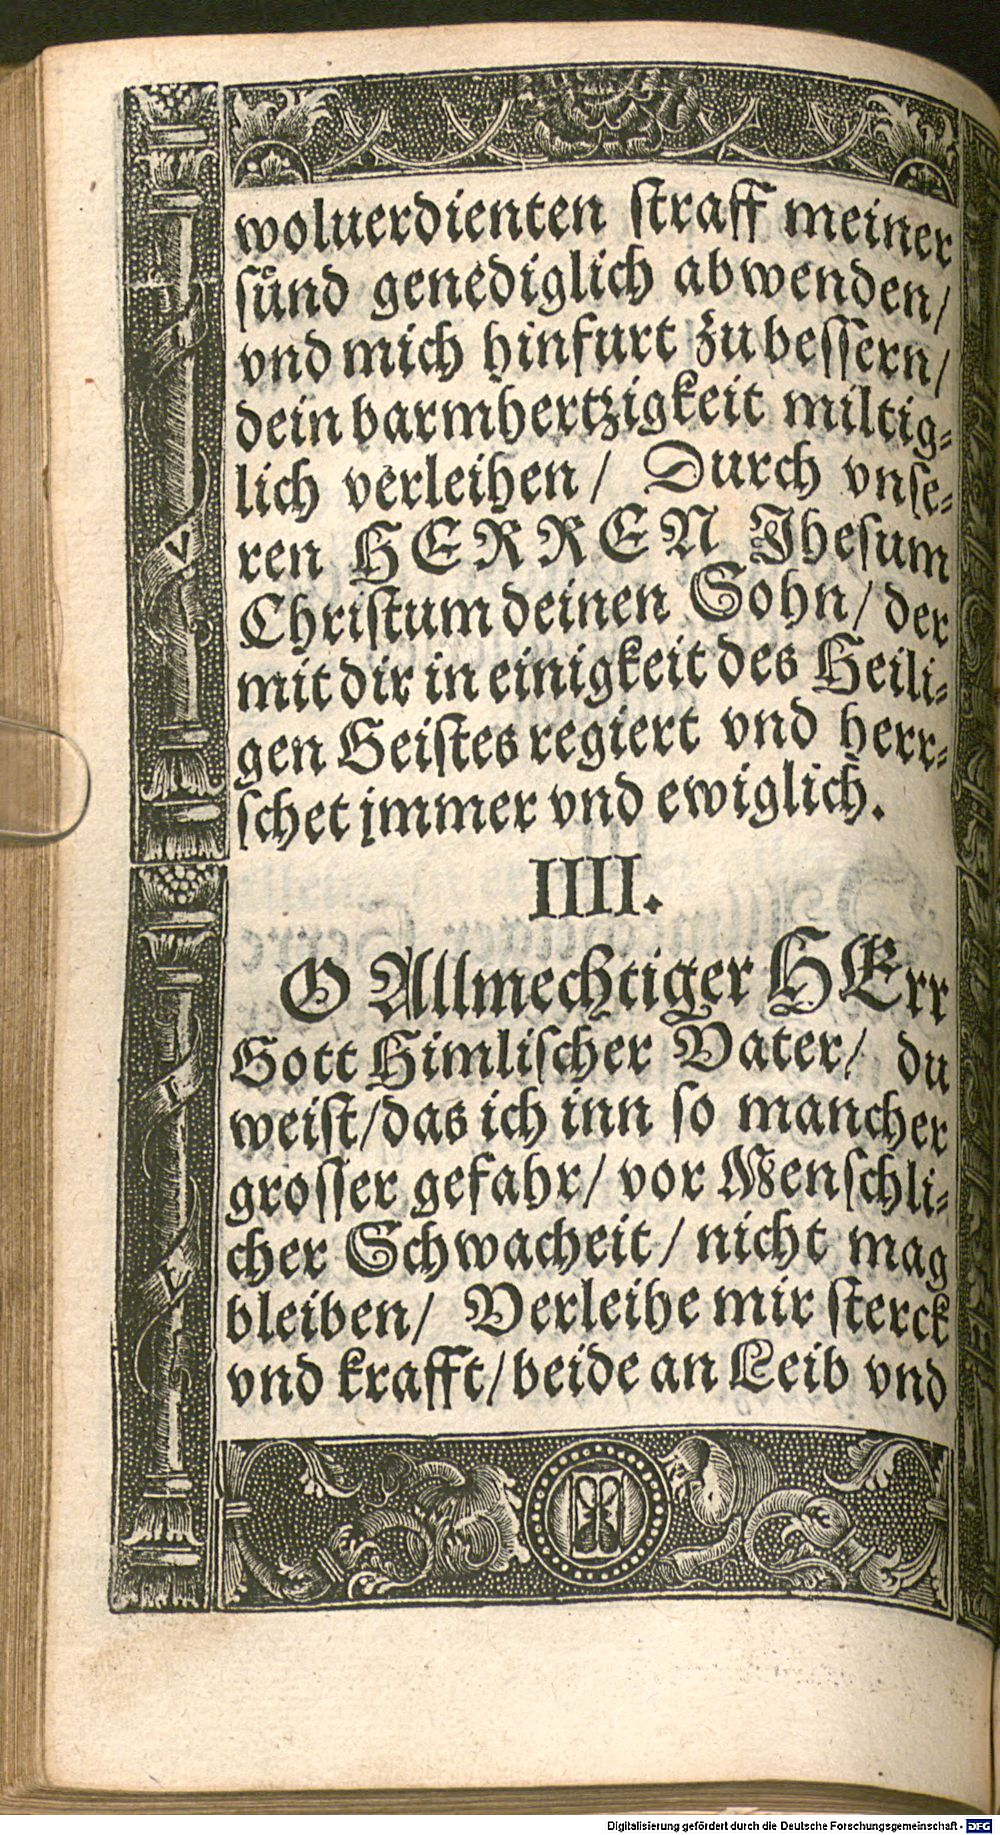 woluerdienten straff meiner
sünd genediglich abwenden/
vnd mich hinfurt zu bessern/
dein barmhertzigkeit miltig⸗
lich verleihen/ Durch vnse⸗
ren HERREN Jhesum
Christum deinen Sohn/ der
mit dir in einigkeit des Heili⸗
gen Geistes regiert vnd herr⸗
schet jmmer vnd ewiglich.
IIII.
O Allmechtiger HErr
Gott Himlischer Vater/ du
weist/das ich inn so mancher
grosser gefahr/ vor Menschli⸗
cher Schwacheit/ nicht mag
bleiben/ Verleihe mir sterck
vnd krafft/beide an Leib vnd
Digitalisierung gefördert durch die Deutsche Forschungsgemeinschaft - DFG